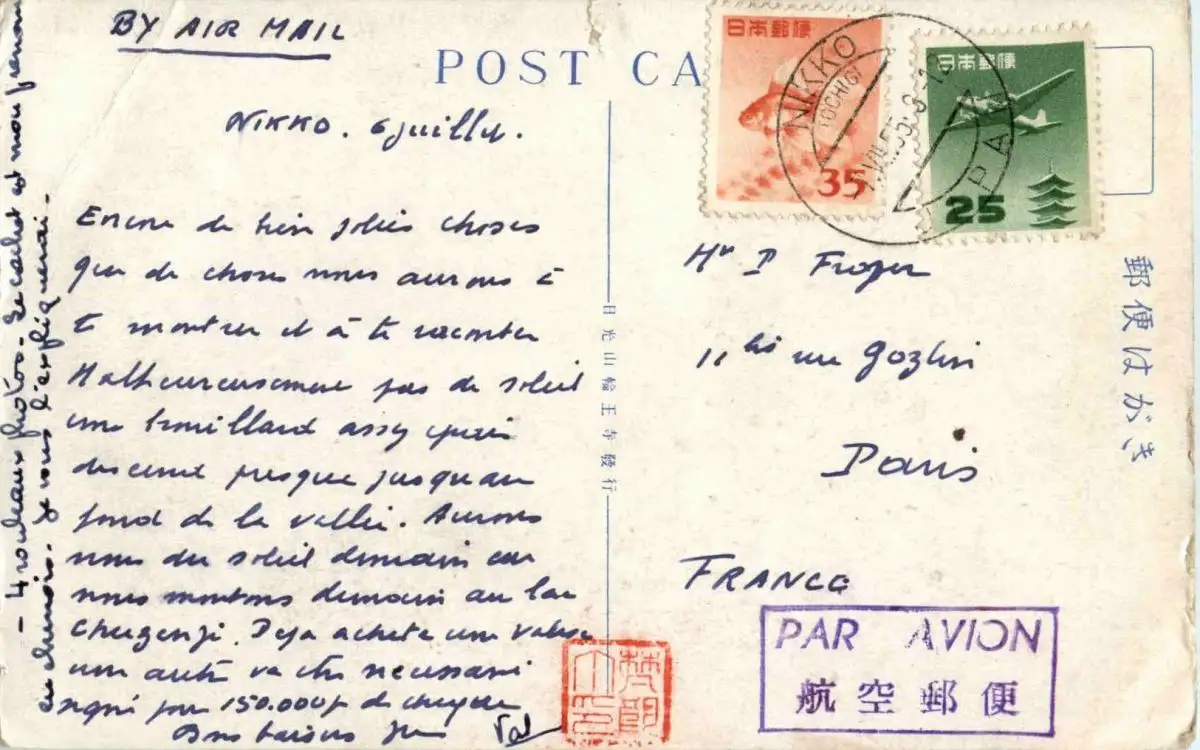 BY AIR MAIL
POST CA
NIKKO. 6 juillet.
Encore de bien jolies choses
que de choses nous aurons à
te montrer et à te raconter
Malheureusement pas de soleil
une brouillard assez épais
descend presque jusqu'au
fond de la vallée. Aurons
nous du soleil demain car
nous montons demain au lac
Chuzenji. Deja acheté une valise
une autre va être necessaire
pour 150.000 f de
Bons baisers
- 4 rouleaux photos. Le cachet est mon prenom
en chinois. Je vous l'expliquerai.
日光山輪王寺發行
日本郵便
35
日本郵便
25
NIKKO
TOCHIGI
JAPAN
郵便はがき
Mr P Froger
11 bis rue Gozlin
Paris
FRANCE
PAR AVION
航空郵便